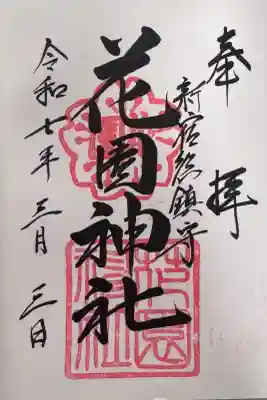 奉拝
新宿総鎮守
花園神社
令和七年三月三日
花園神社